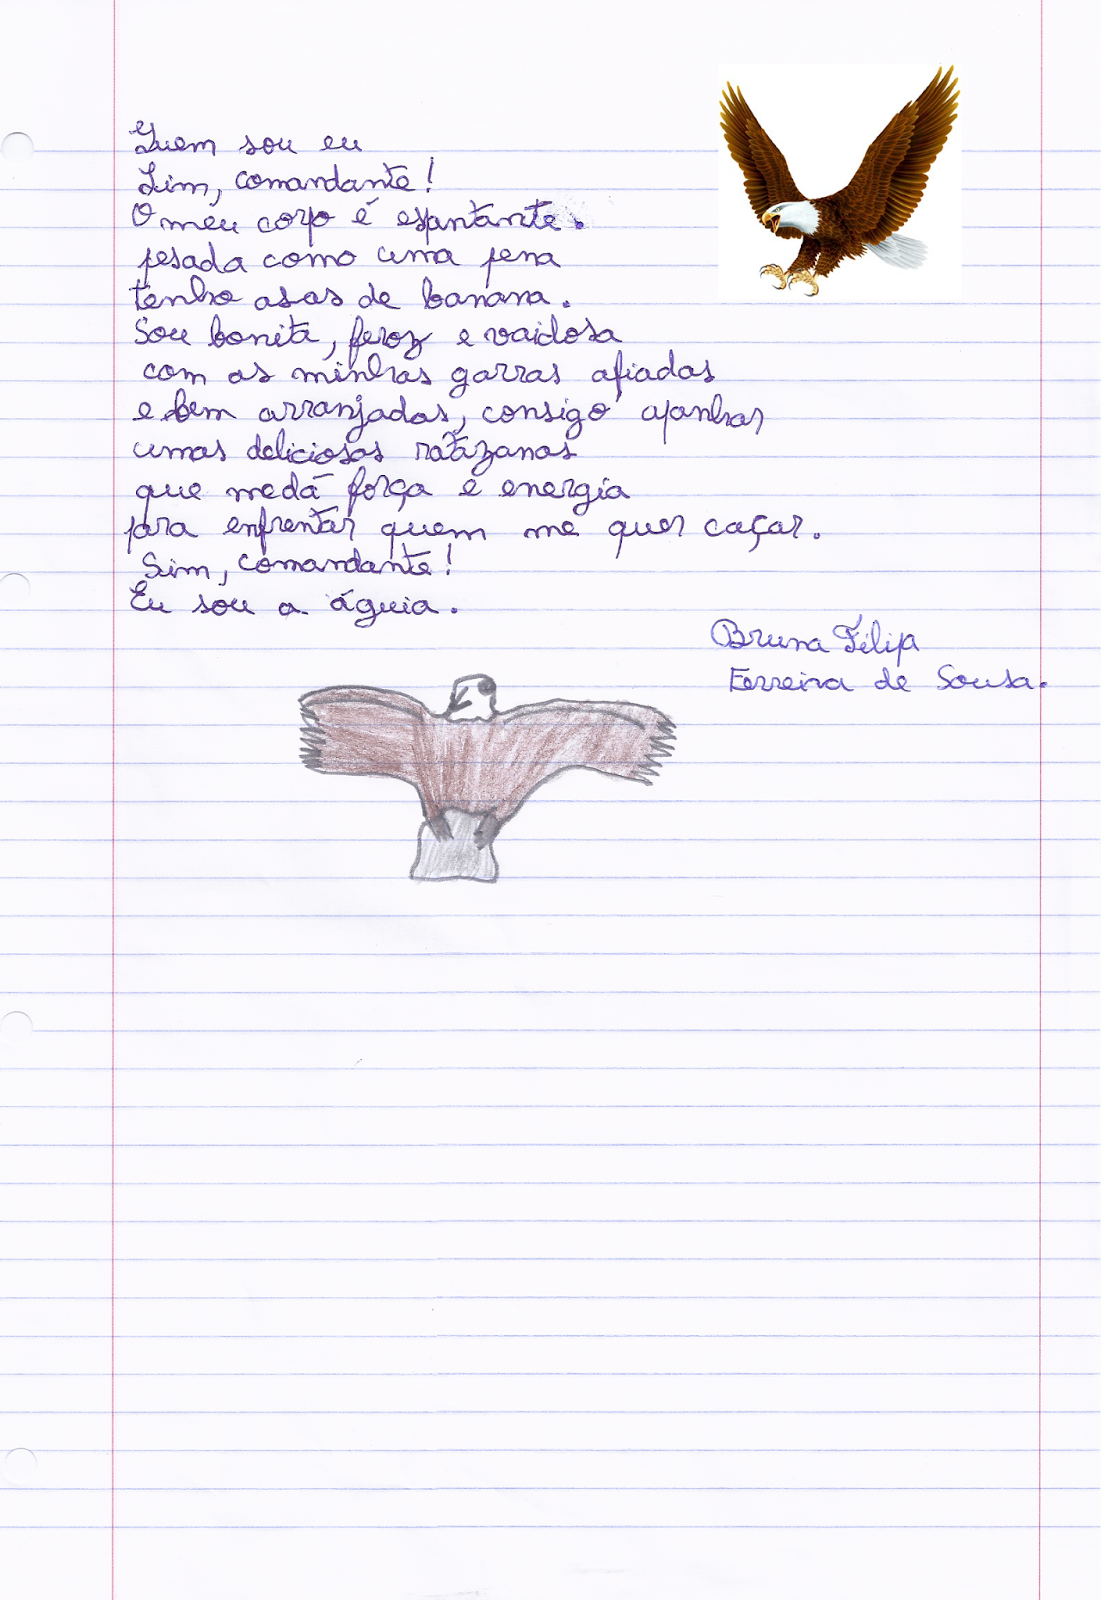 Quem sou eu
Sim, comandante!
O meu corpo é espantante.
pesada como uma pena
tenho asas de banana.
Sou bonita, feroz e vaidosa
com as minhas garras afiadas
e bem arranjadas, consigo apanhar
umas deliciosas ratazanas
que medá força e energia
para enfrentar quem me quer caçar.
Sim, comandante!
Eu sou a águia.
Bruna Filipa
Ferreira de Sousa.